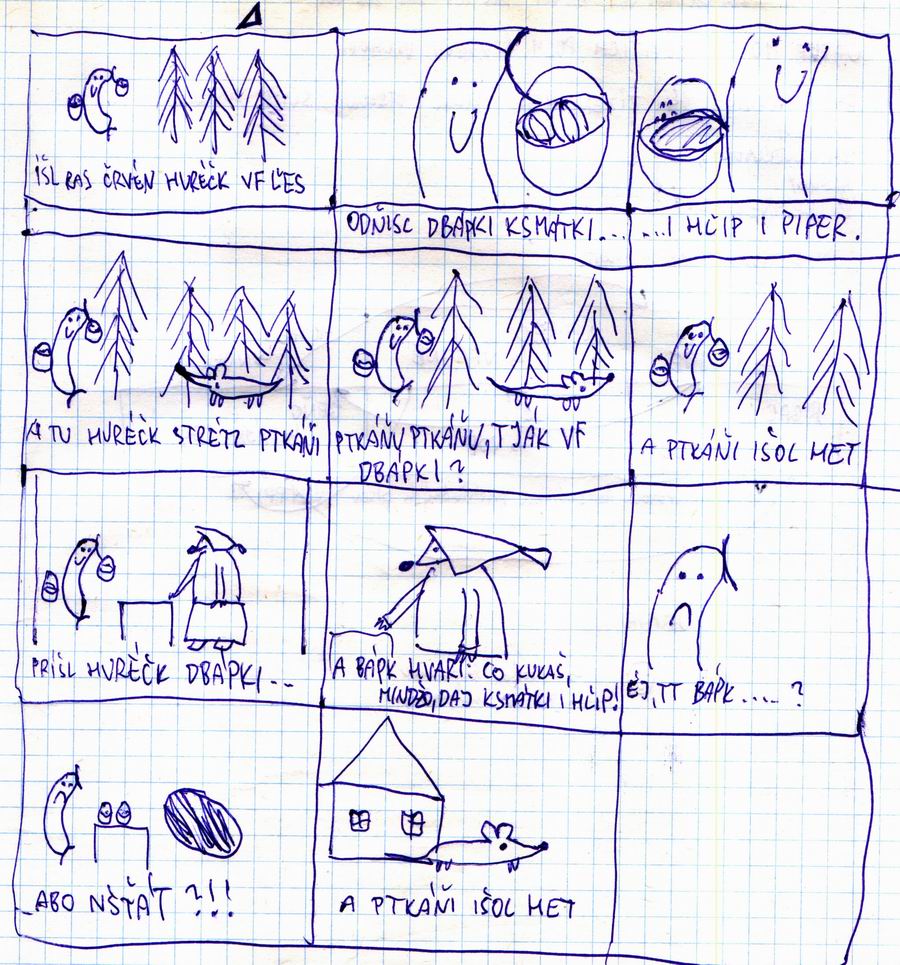 IŠL RAS ČRVÉN HURÉČK VF ĽES
ODŇISC DBAPKI KSMATKI...
...I HĽIP I PIPER.
A TU HURÉČK STRÉTL PTKÁŇI
PTKÁŇU, PTKÁŇU, TJÁK VF
DBAPKI?
A PTKÁŇI IŠOL HET
PRIŠL HURÉČK DBAPKI...
A BAPK HVARÍ: CO KUKAŠ,
MINDŽO, DAJ KSMATKI I HĽIP!
ÉJ, TT BAPK .... ?
ABO NŠŤAT ?!!
A PTKÁŇI IŠOL HET